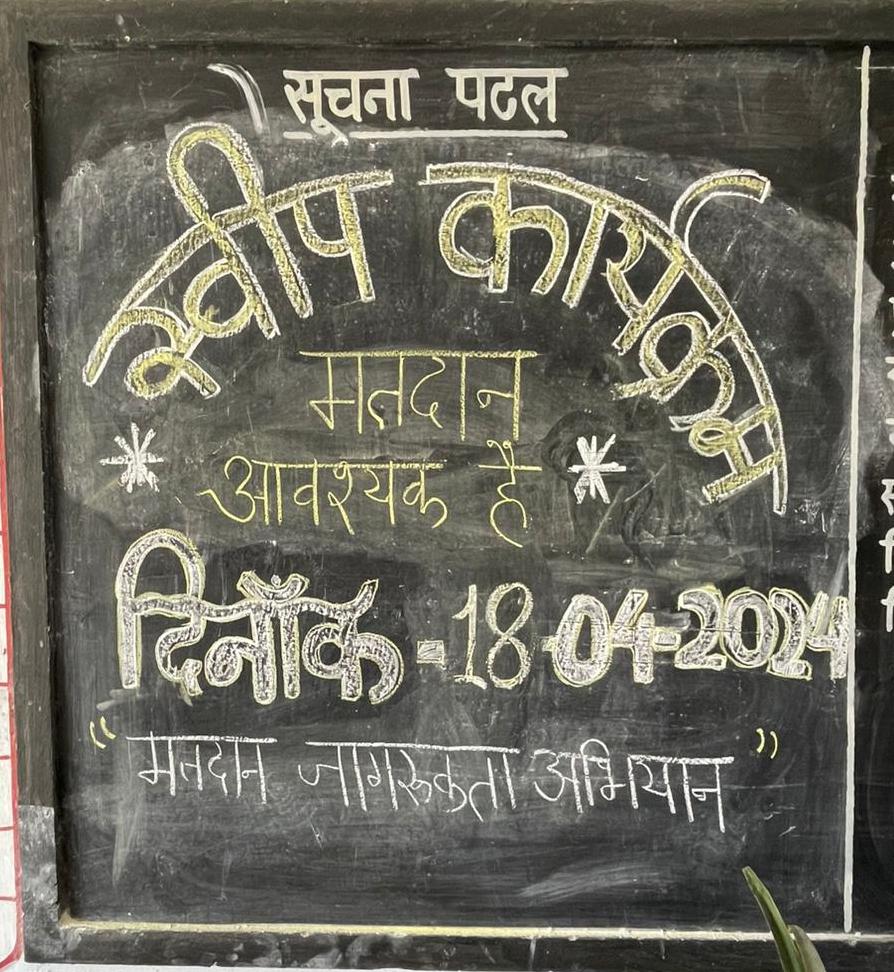 सूचना पटल
स्वीप कार्यक्रम
मतदान
आवश्यक है
दिनाँक - 18-04-2024
“मतदान जागरूकता अभियान”